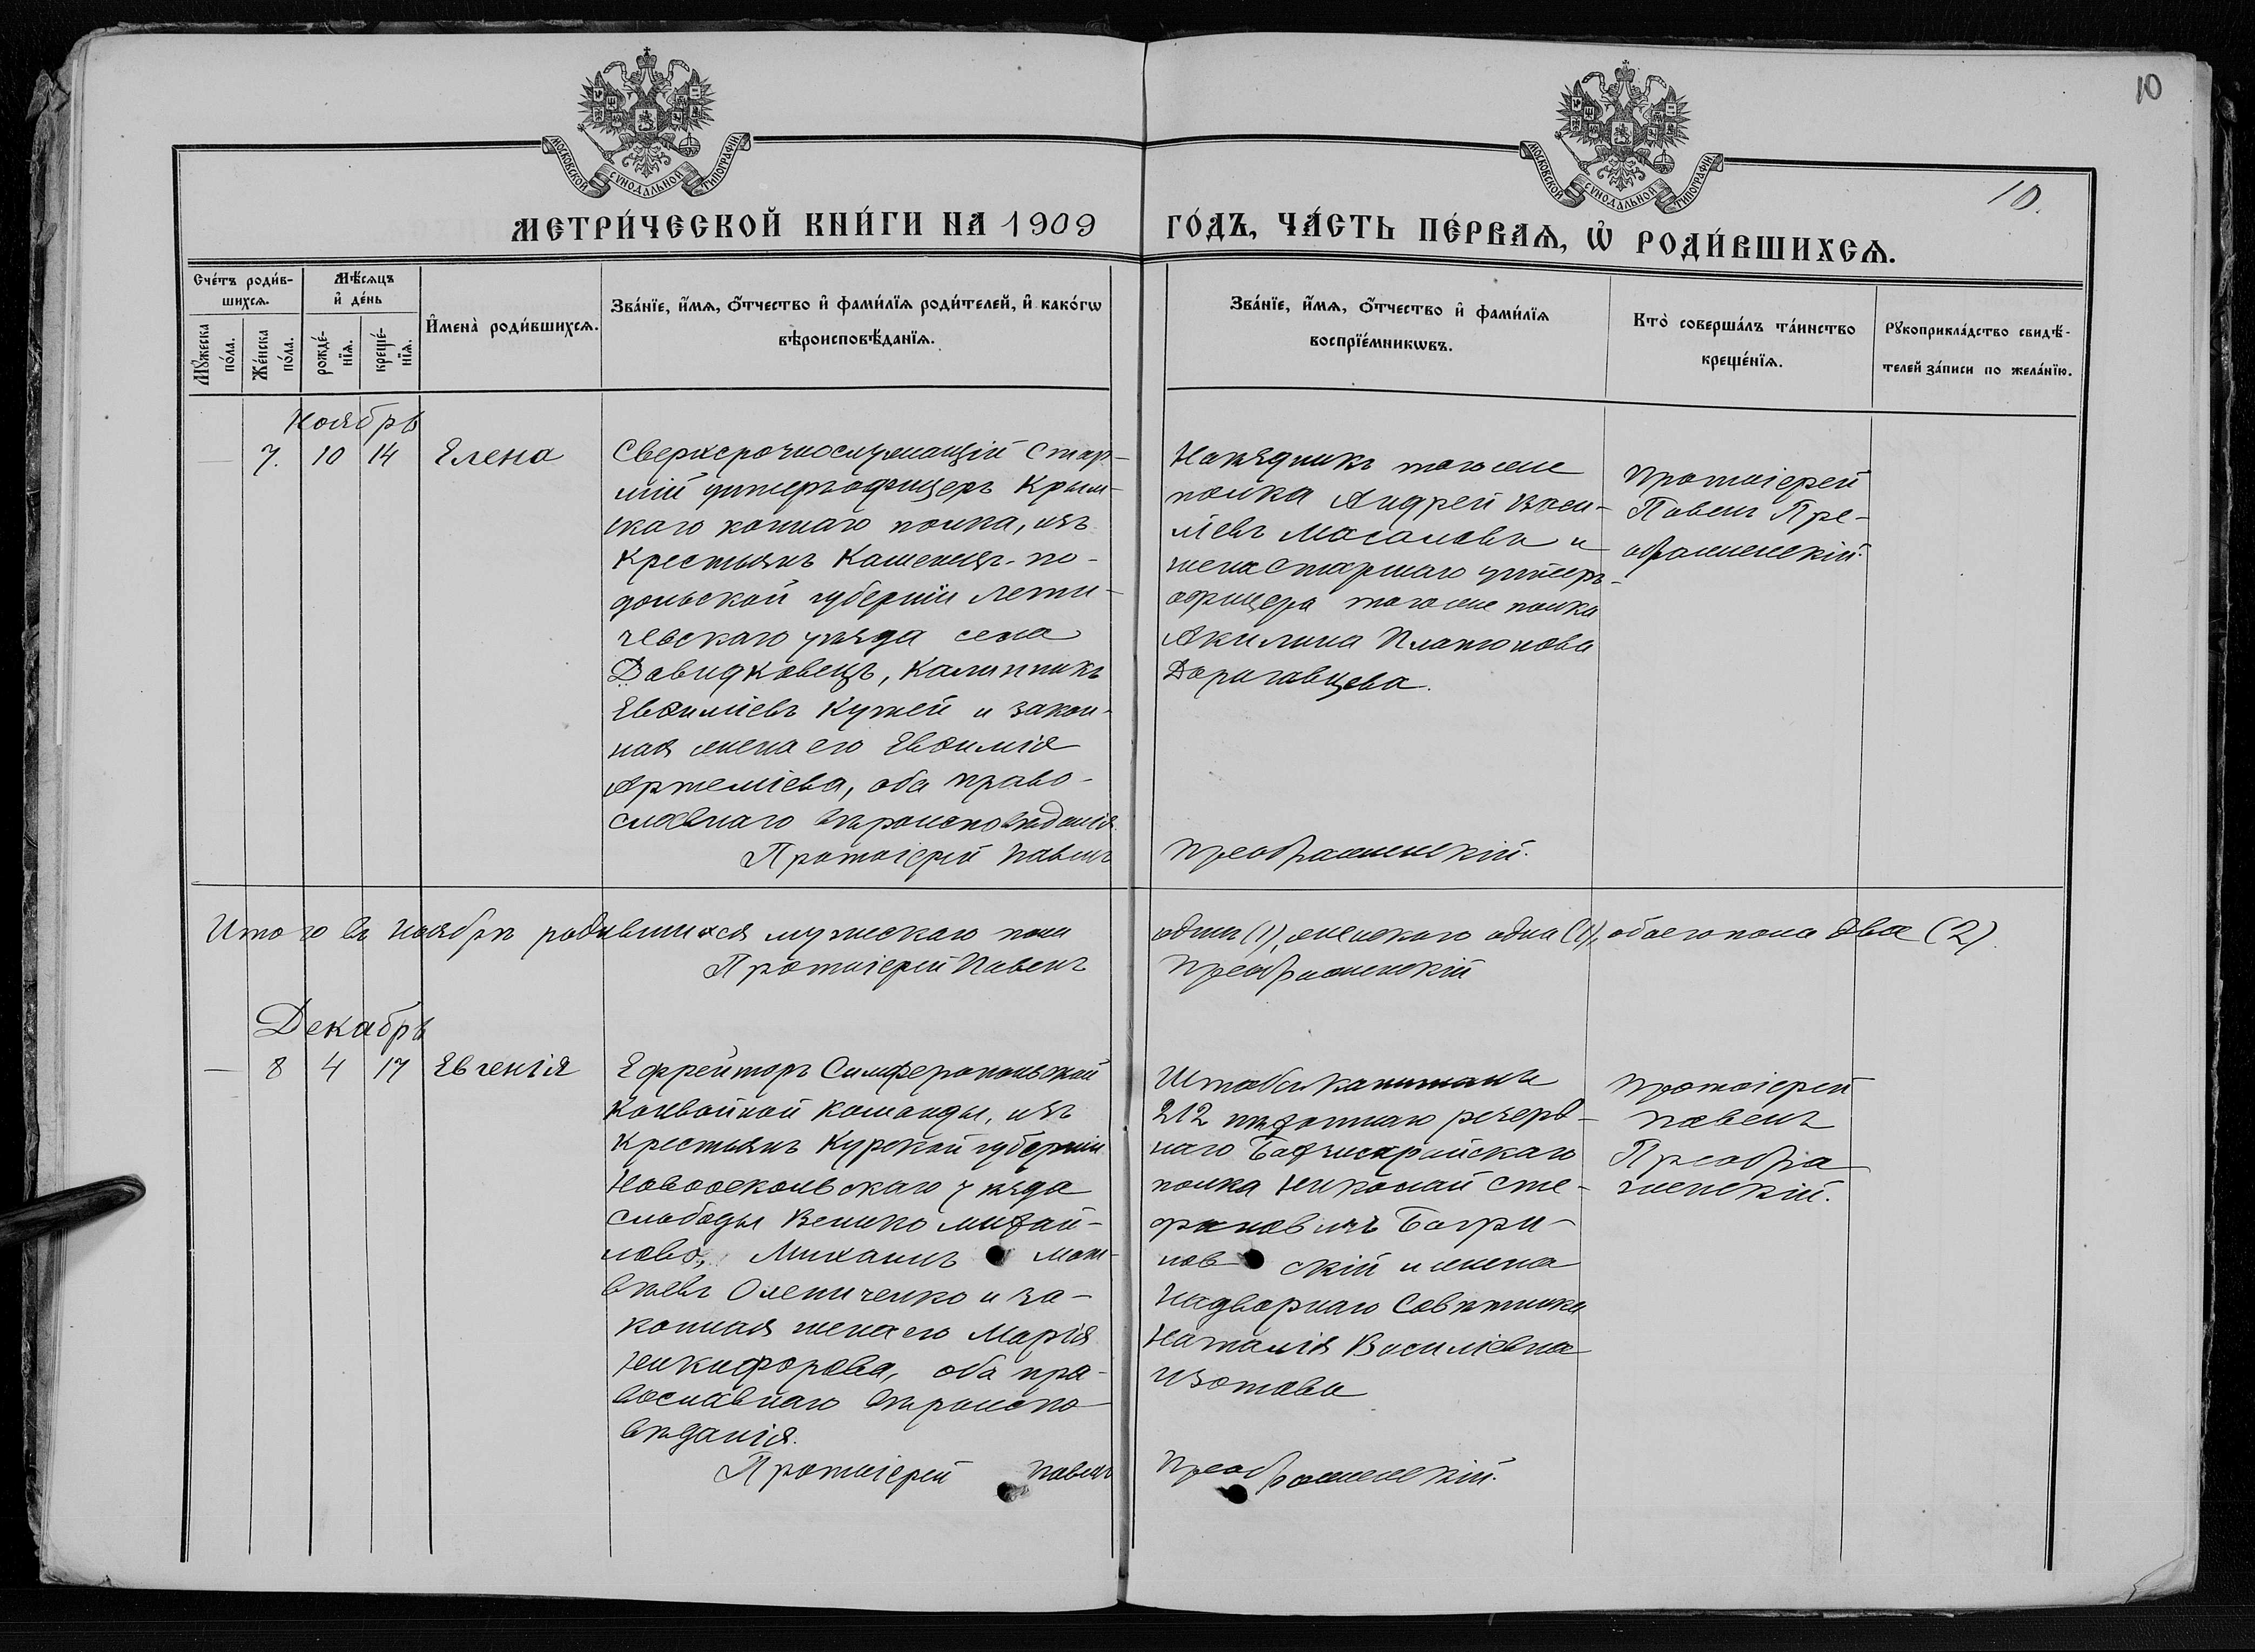 10
МОСКОВСКОЙ СѴНОДАЛЬНОЙ ТИПОГРАФІИ
МОСКОВСКОЙ СѴНОДАЛЬНОЙ ТИПОГРАФІИ
10.
МЕТРИ́ЧЕСКОЙ КНИ́ГИ НА 1909 ГО́ДЪ, ЧА́СТЬ ПЕ́РВАѦ, Ѽ РОДИ́ВШИХСѦ.
Сче́тъ роди́в-
шихсѧ.
Мꙋ́жеска по́ла.
Же́нска по́ла.
Мѣ́сѧцъ
и҆ де́нь
рожде́-
нїѧ.
креще́-
нїѧ.
И҆мена̀ роди́вшихсѧ.
Зва́нїе, и҆́мѧ, ѻ҆́тчество и҆ фами́лїѧ роди́телей, и҆ како́гѡ
вѣроисповѣ́данїѧ.
Зва́нїе, и҆́мѧ, ѻ҆́тчество и҆ фами́лїѧ
воспрїе́мникѡвъ.
Кто̀ соверша́лъ та́инство
креще́нїѧ.
Рꙋкоприкла́дство свидѣ́-
телей за́писи по жела́нїю.
Ноябрь
— 7. 10 14 Елена
Сверхсрочнослужащій стар-
шій унтеръ-офицеръ Крым-
скаго коннаго полка, изъ
крестьянъ Каменецъ-По-
дольской губерніи Лети-
чевскаго уѣзда села
Давидковецъ, Калинникъ
Евѳиміевъ Кужей и закон-
ная жена его Евѳимія
Артеміева, оба право-
славнаго вѣроисповѣданія.
Наѣздникъ того же
полка Андрей Васи-
ліевъ Масаловъ и
жена старшаго унтеръ-
офицера того же полка
Акилина Платонова
Доригавцева.
Протоіерей
Павелъ Пре-
ображенскій.
Протоіерей Павелъ Преображенскій.
Итого въ ноябрѣ родившихся мужескаго пола одинъ (1), женскаго одна (1), обоего пола два (2).
Протоіерей Павелъ Преображенскій
Декабрь
— 8 4 17 Евгенія
Ефрейторъ Симферопольской
конвойной команды, изъ
крестьянъ Курской губерніи
Новооскольскаго уѣзда
слободы Велико михай-
лово, Михаилъ Мат-
вѣевъ Олениченко и за-
конная жена его Марія
Никифорова, оба пра-
вославнаго вѣроиспо-
вѣданія.
Штабсъ-капитанъ
212 пѣхотнаго резерв-
наго Бахчисарайскаго
полка Николай Сте-
фановичъ Багри-
новскій и жена
Надворнаго Совѣтника
Наталія Василіевна
Изотова
Протоіерей
Павелъ
Преобра-
женскій.
Протоіерей Павелъ Преображенскій.